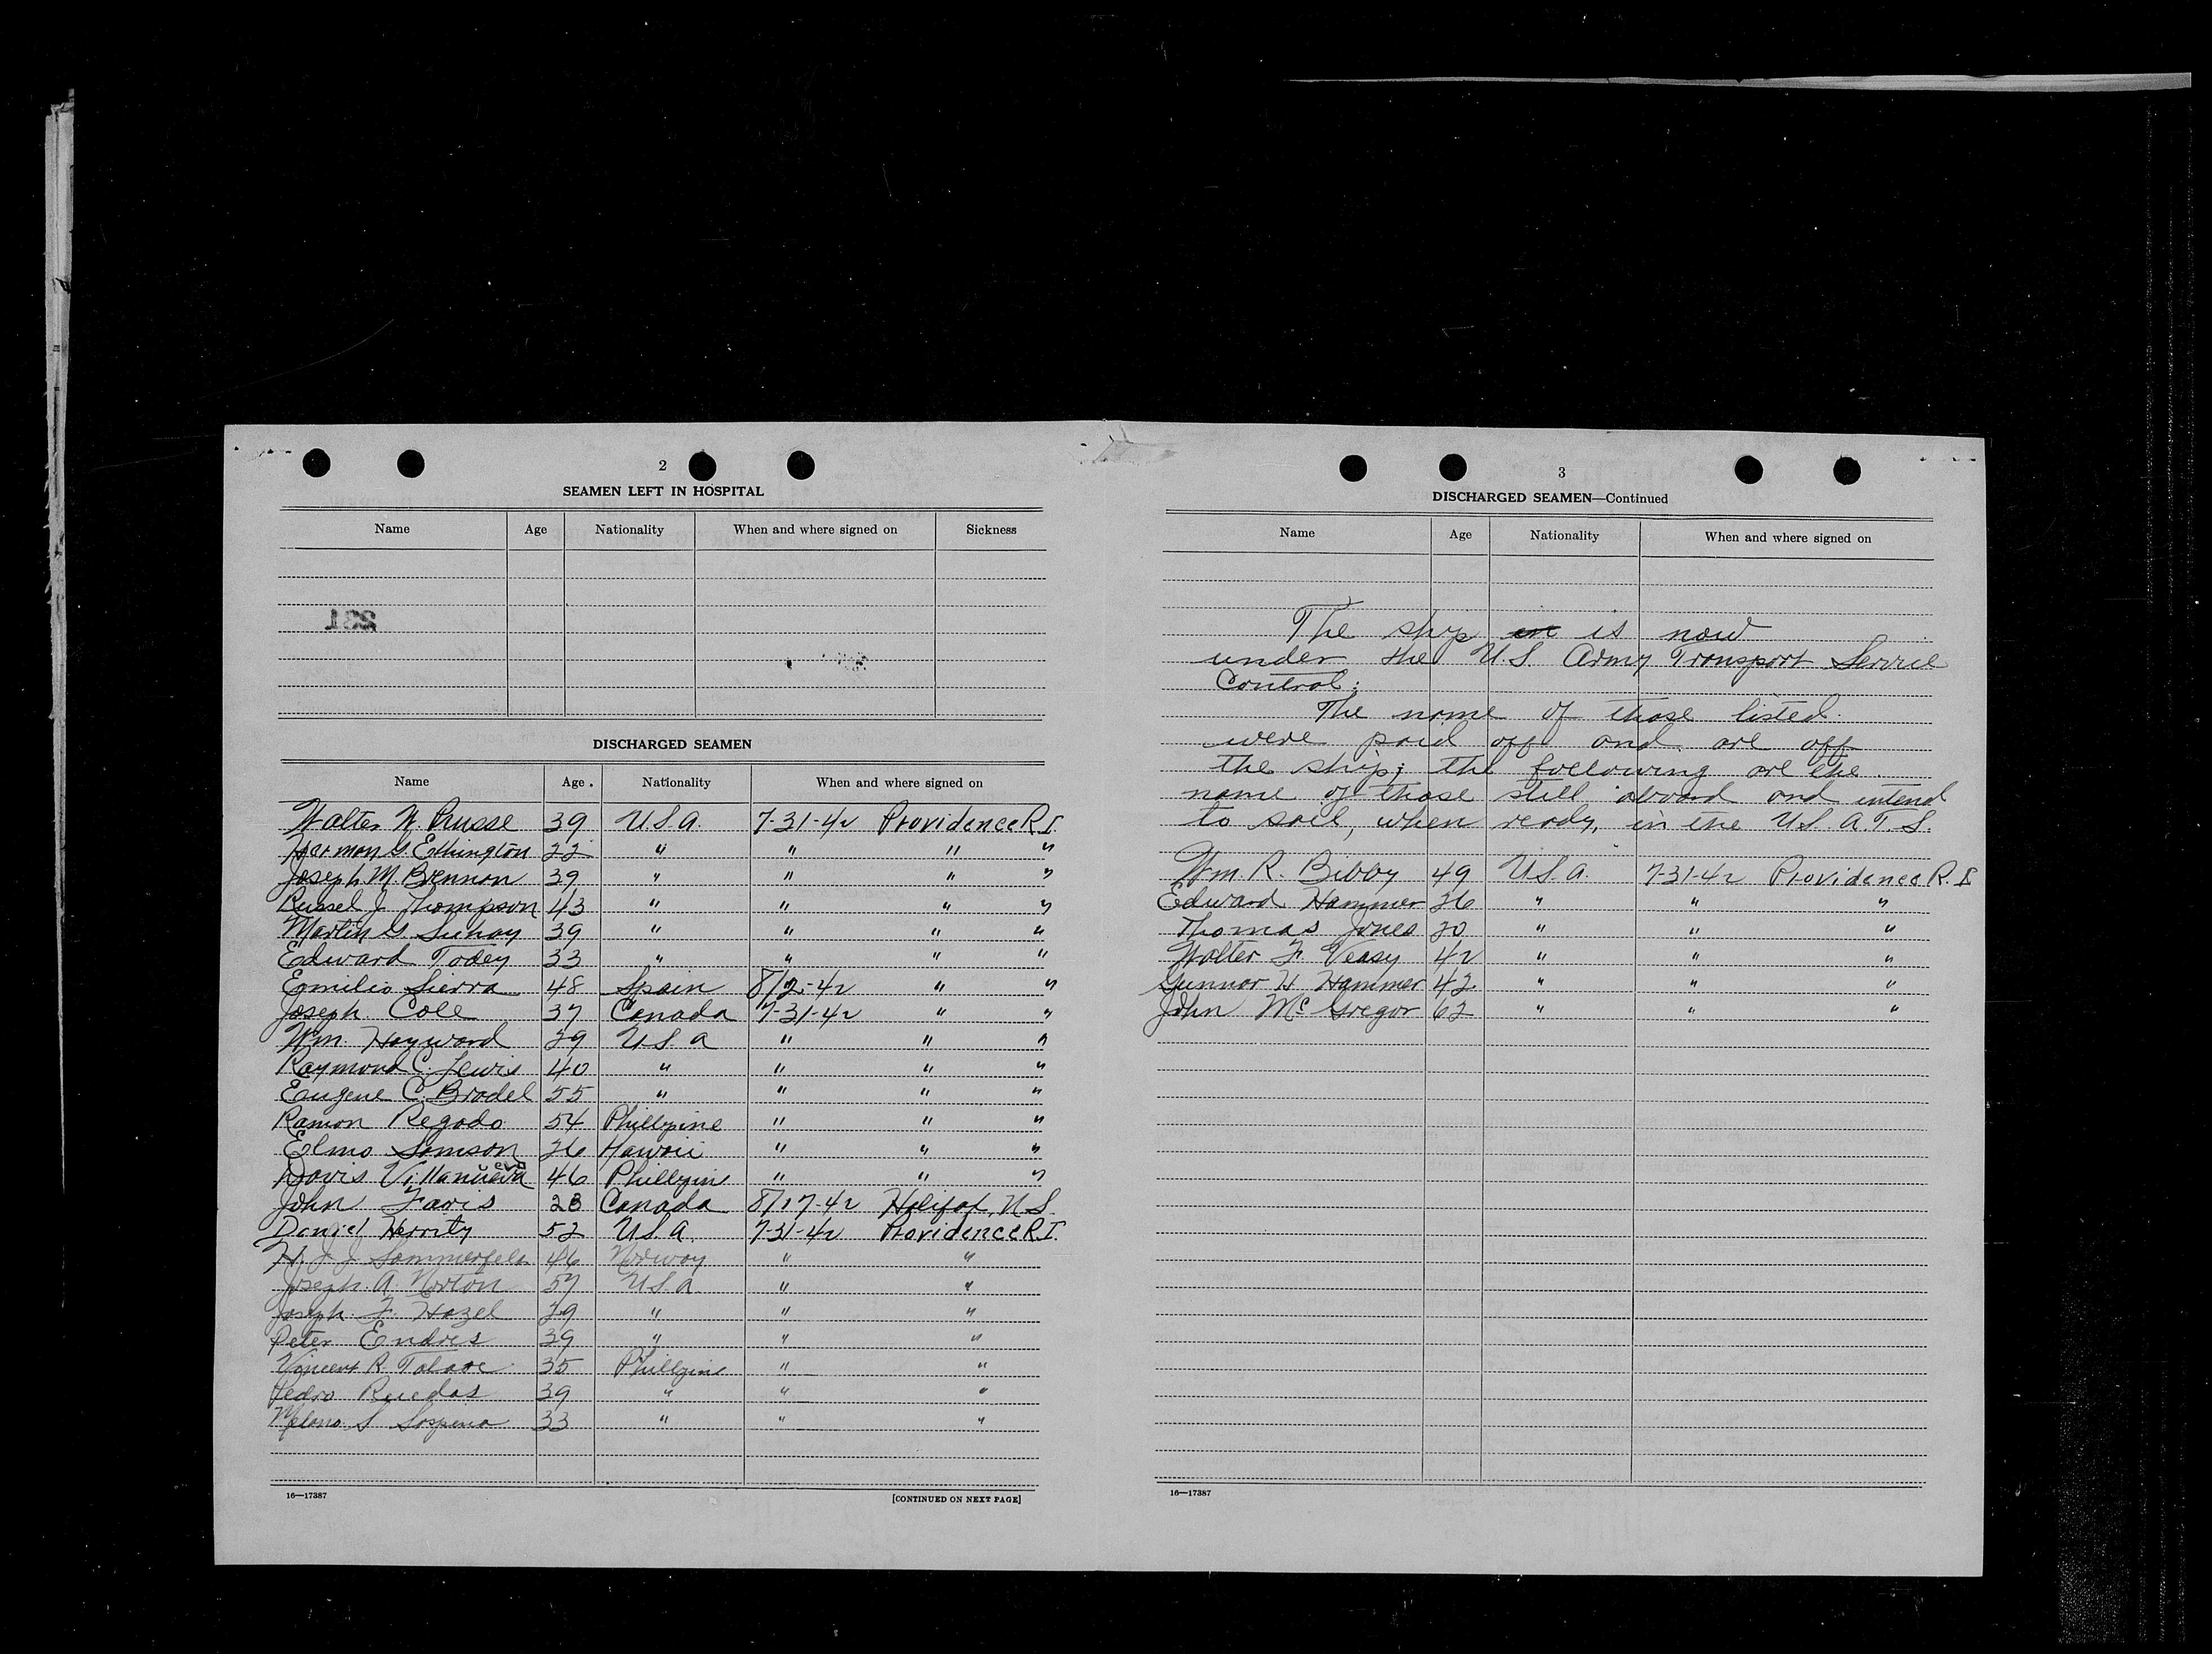 2
SEAMEN LEFT IN HOSPITAL
Name Age Nationality When and where signed on Sickness
231
DISCHARGED SEAMEN
Name Age. Nationality When and where signed on
Walter W. Prusse 39 U.S.A. 7-31-42 Providence R.I.
Harmon G. Ethington 22 " " " "
Joseph M. Brennon 39 " " " "
Russel J. Thompson 43 " " " "
Martin G. 39 " " " "
Edward Todey 33 " " " "
Emilio Sierra 48 Spain 8/2-42 " "
Joseph Cole 37 Canada 7-31-42 " "
Wm. Hayward 29 U.S.A " " "
Raymond C. Lewis 40 " " " "
Eugene C. Brodel 55 " " " "
Ramon Regado 54 Phillipine " " "
Elmo Samson 26 Hawaii " " "
Davis Villanueva 46 Phillipin " " "
John Faris 28 Canada 8/17-42 Halifax, N.S.
Daniel Herrity 52 U.S.A. 7-31-42 Providence R.I.
H. J. J. Sommerfeln 46 Norway " "
Joseph A. Norton 57 U.S.A " "
Joseph F. Hazel 29 " " "
Peter Endres 39 " " "
Vincent R. 35 Phillipine " "
Pedro Ruedas 39 " " "
S. 33 " " "
16—17387 [CONTINUED ON NEXT PAGE]
3
DISCHARGED SEAMEN—Continued
Name Age Nationality When and where signed on
The ship is now
under the U.S. Army Transport Service
Control;
The name of those listed
were paid off and are off
the ship; the following are the
name of those still aboard and intend
to sail, when ready, in the U.S.A.T.S.
Wm. R. Bibby 49 U.S.A. 7-31-42 Providence R.I
Edward Hammer 26 " " "
Thomas Jones 20 " " "
Walter F. Veasy 42 " " "
Gunnar H. Hammer 42 " " "
John McGregor 62 " " "
16—17387